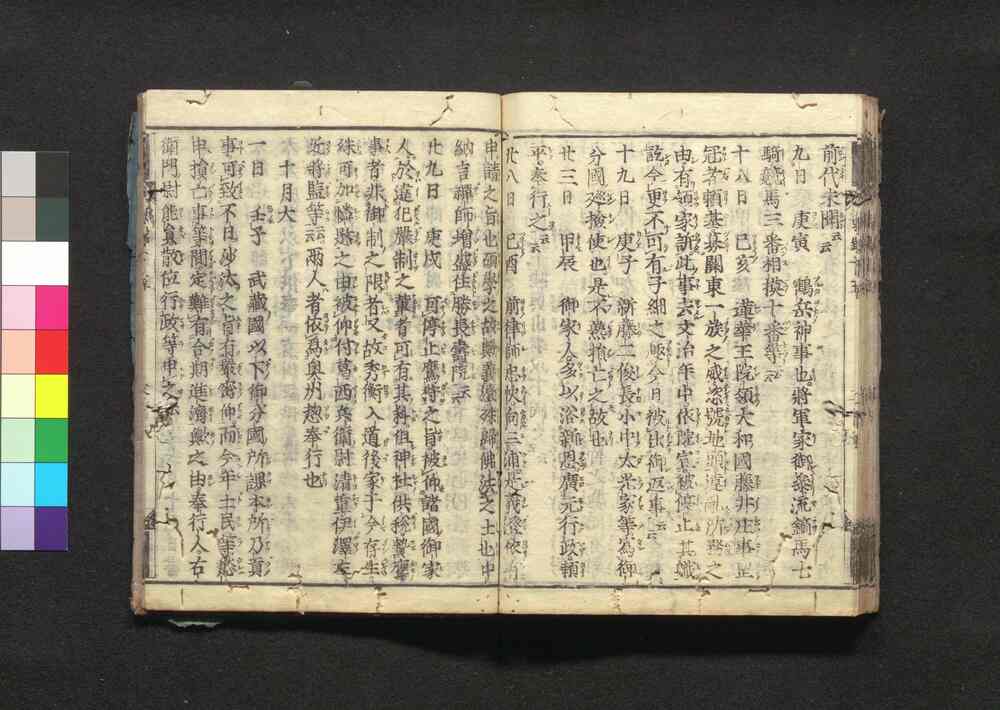 前代未聞云云
九日　庚寅　鶴岳神事也將軍家御參流鏑馬七
騎競馬三番相撲十番等云云
十八日　己亥　蓮華王院領大和國藤井庄事
冠者頼基募關東一族之威恣號地頭違亂所務之
由有領家訴此事去文治年中依院宣被停止其職
訖今更不可有子細之趣今日被出御返事云云
十九日　庚子　新藤二俊長小中太光家等為御
分國廵撿使也是不熟損亡之故也
廿三日　甲辰　御家人多以浴新恩廣元行政頼
平奉行之云云
廿八日　己酉　前律師忠快向三浦是義澄依
申請之旨也碩學之故義澄殊歸佛法之士也中
納言禪師増盛住勝長壽院云云
廿九日　庚戌　可停止鷹狩之旨被仰諸國御家
人於違犯嚴制之輩者可有其科但神社供税贄鷹
事者非御制之限者又故秀衡入道後家于今存生
殊可加憐愍之由被仰付葛西兵衛尉清重伊澤左
近將監等云云兩人者依為奥州惣奉行也
十月大
一日　壬子　武藏國以下御分國所課本所乃貢
事可致不日沙汰之旨有嚴密仰而今年士民等愁
申損亡事等間定難有合期進濟歟之由奉行人右
衛門尉能員散位行政等申之